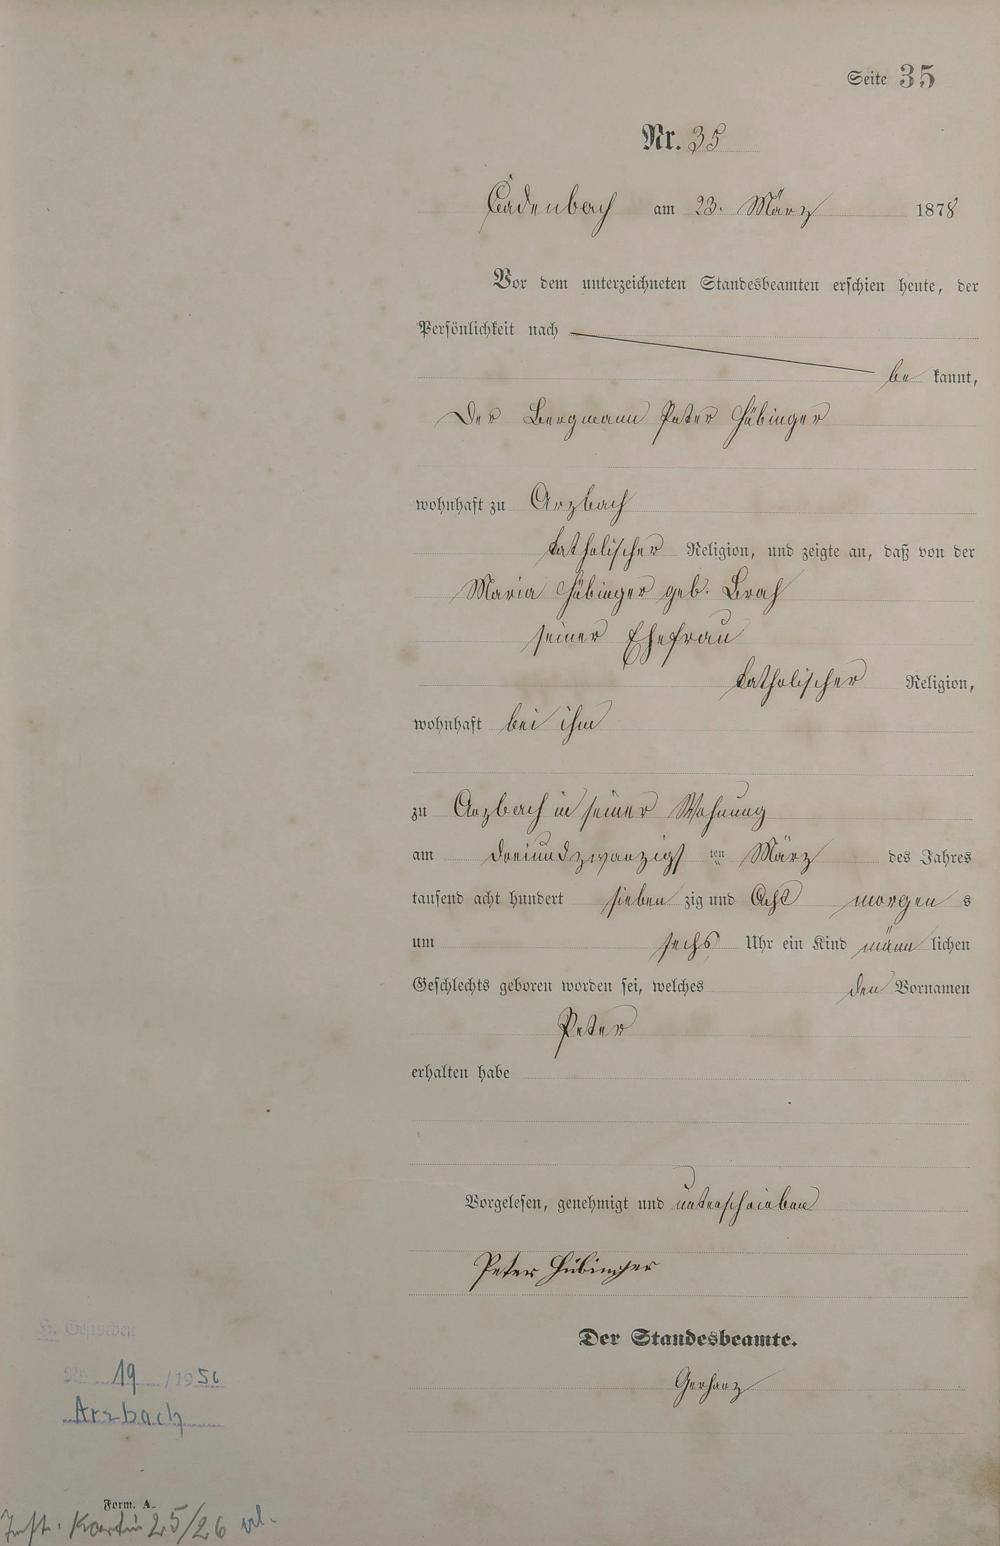 Seite 35
Nr. 35
Cadenbach am 23. März 1878
Vor dem unterzeichneten Standesbeamten erschien heute, der
Persönlichkeit nach
be kannt,
Der Bergmann Peter Hübinger
wohnhaft zu Arzbach
katholischer Religion, und zeigte an, daß von der
Maria Hübinger geb. Brah
seiner Ehefrau
katholischer Religion,
wohnhaft bei ihm
zu Arzbach in seiner Wohnung
am dreiundzwanzigs ten März des Jahres
tausend acht hundert sieben zig und Acht morgen s
um sechs Uhr ein Kind männ lichen
Geschlechts geboren worden sei, welches den Vornamen
Peter
erhalten habe
Vorgelesen, genehmigt und unterschrieben
Peter Hübinger
Der Standesbeamte.
Gerharz
19 /1950
Arzbach
Form. A.
25/26